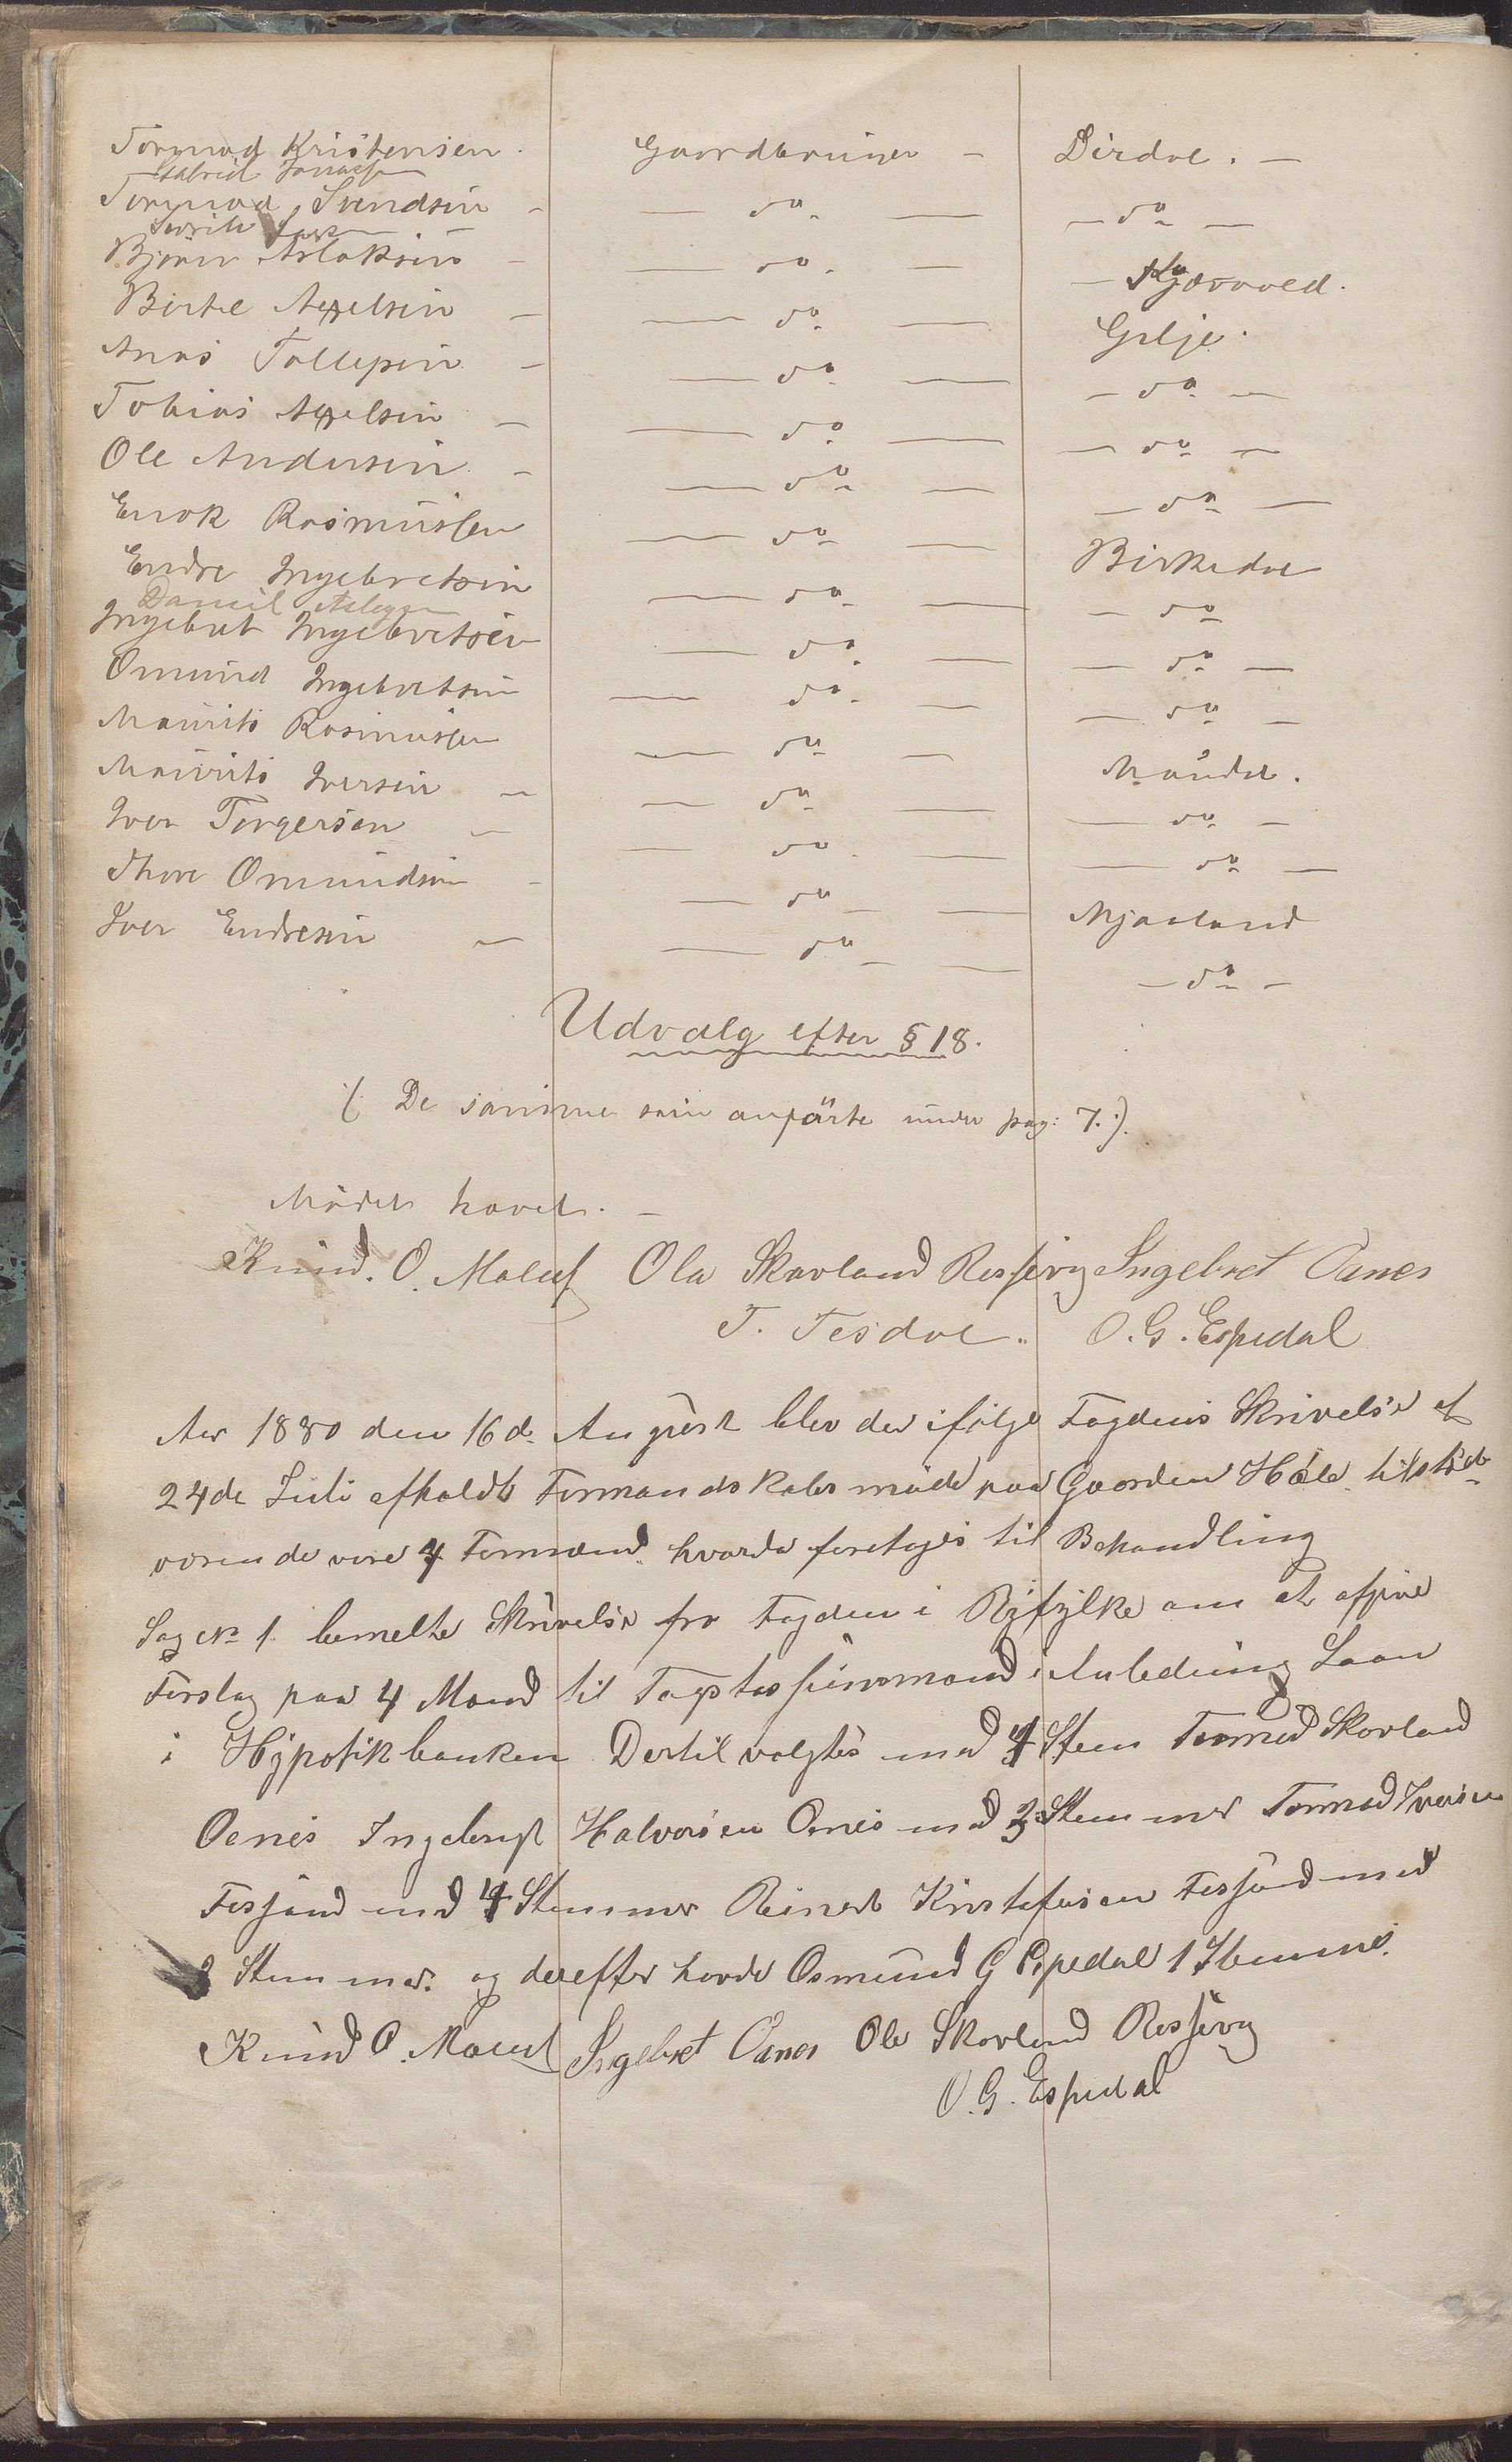 Tormod Kristensen. Gaardbruger - Dirdal. -
Gabriel Jonassen
Tormod Svendsen - — do — - do -
Bjørn Aslaksen - — do. — - Kjærvold.
Bertel Axelsen - — do — Gilje.
Anas Tollefsen - — do — - do -
Tobias Axelsen - — do — - do -
Ole Andersen - — do — - do -
Enok Rasmussen — do — Birkedal
Endre Ingebretsen — do — - do
Daniel
Ingebret Ingebretsen — do — - do -
Omund Ingebretsen — do — - do -
Maurits Rasmussen — do — Maudal.
Maurits Iversen - — do — - do -
Iver Torgersen - — do — - do -
Thore Omundsen - — do — Mjaaland
Iver Endresen - — do — - do -
Udvalg efter § 18.
(: De samme som anførte under pag: 7. :)
Mødet hævet. -
Knud. O. Maele Ola Skavland Ingebret Oanes
T. Tesdal. O. G. Espedal
Aar 1880 den 16de August blev der ifølge Fogdens Skrivelse af
24de Juli afholdt Formandskabsmøde paa Gaarden Høle tilstede
værende vare 4 Formænd hvorda foretoges til Behandling
Sag No 1. bemelte Skrivelse fra Fogden i Ryfylke om at afgive
Forslag paa 4 Mænd til Taxtas i Anledning Laan
i Hypotikbanken Dertil valgtes med 4 Stem Tormod Skavland
Oanes Ingebregt Halvorsen Oanes med 3 Stemmer Tormod Iversen
Fossand med 4 Stemmer Reinert Kristofersen Fossand med
3 Stemmer. og derefter havde Osmund G Espedal 1 Stemme.
Knud O. Maele Ingebret Oanes Ole Skavland
O. G. Espedal